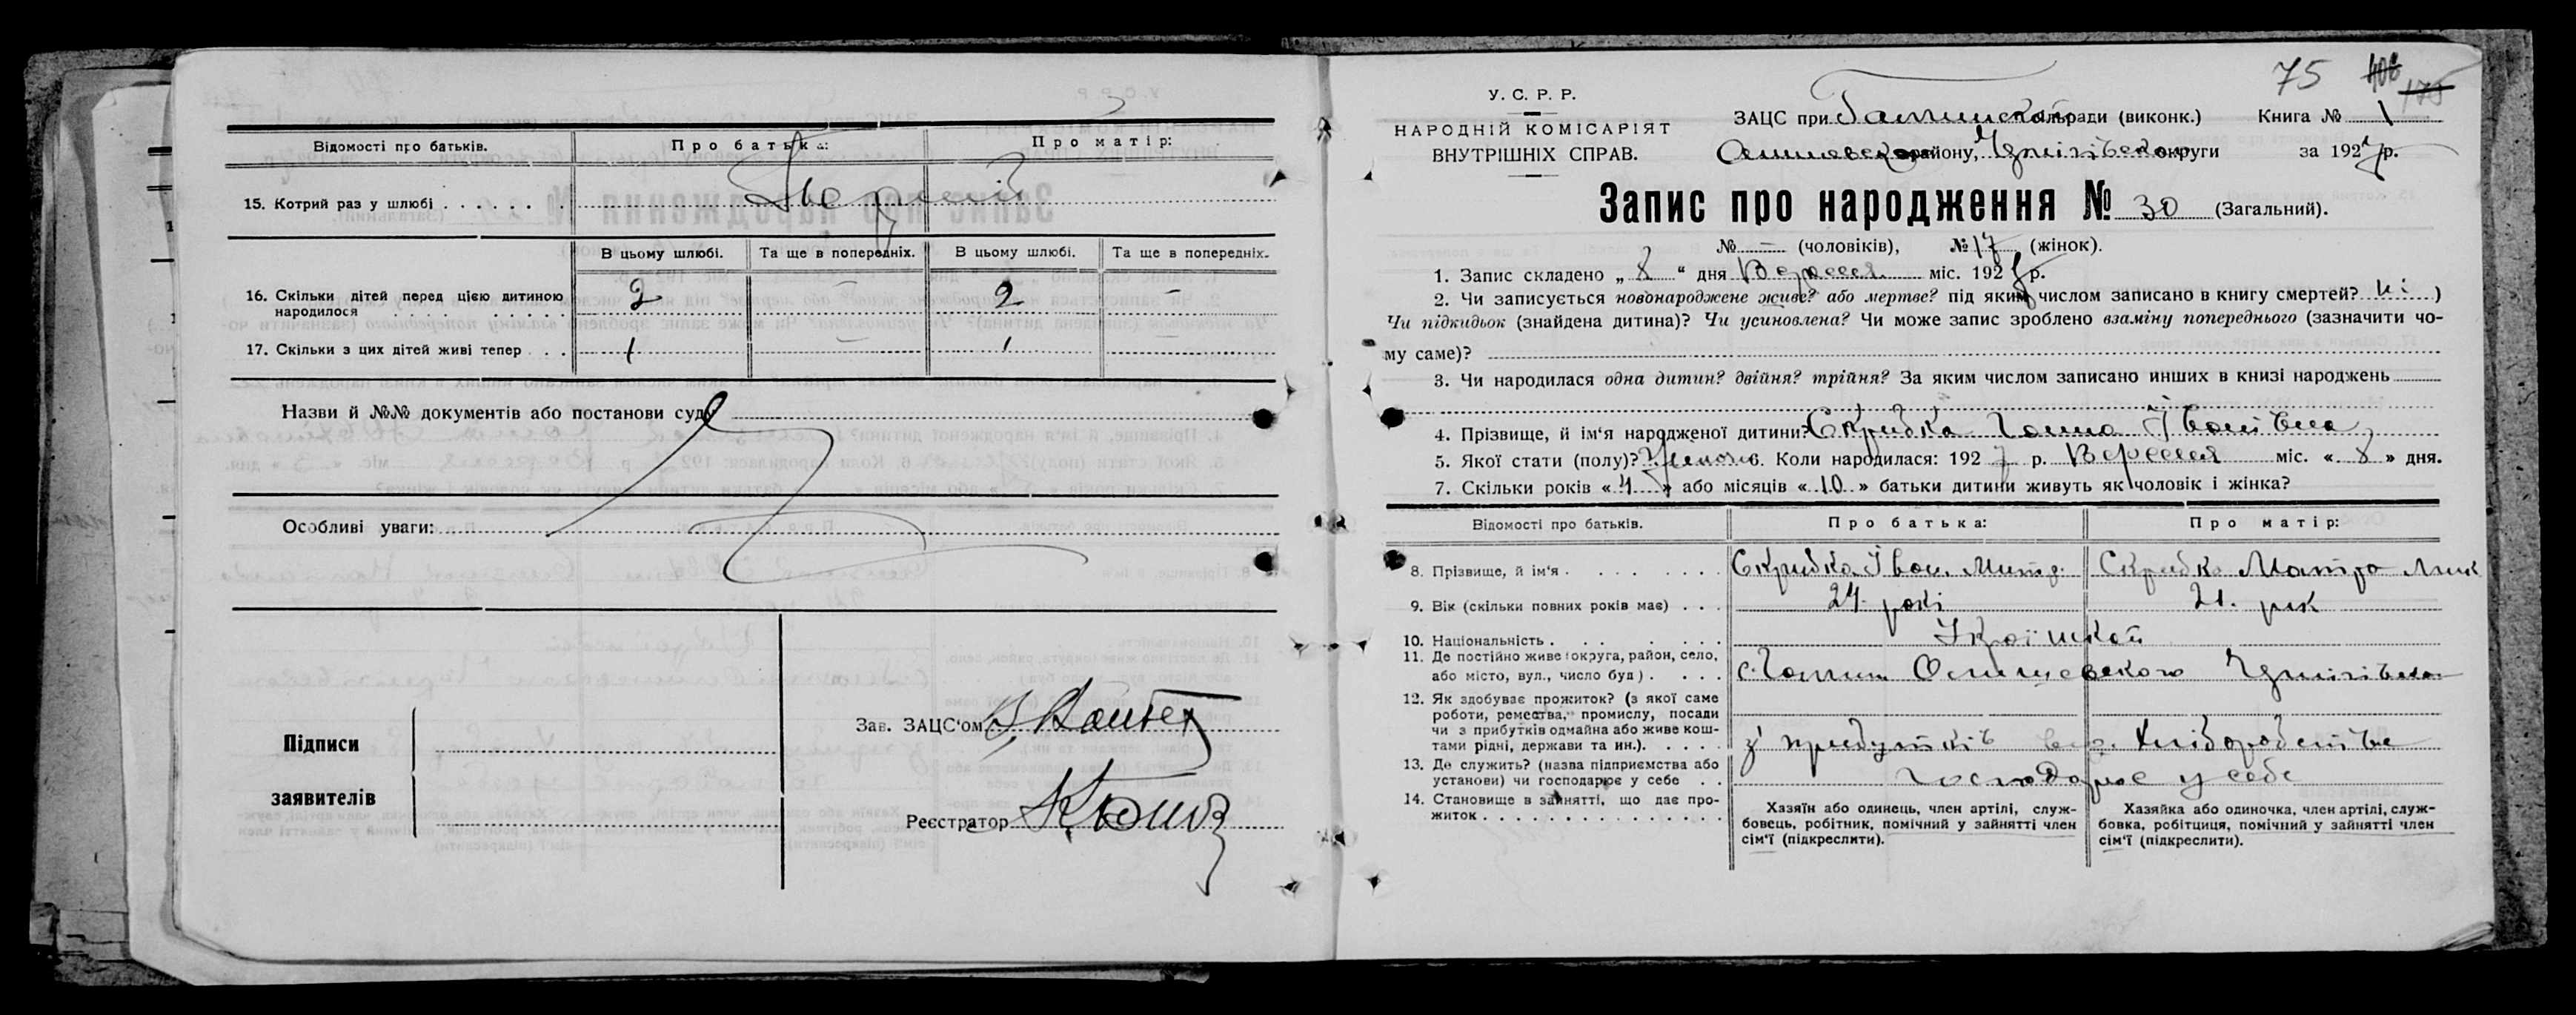 Відомості про батьків. Про батька: Про матір:
15. Котрий раз у шлюбі . . . . . . . Перший
В цьому шлюбі. Та ще в попередніх. В цьому шлюбі. Та ще в попередніх.
16. Скільки дітей перед цією дитиною народилося . . . . 2 – 2 –
17. Скільки з цих дітей живі тепер . . . 1 – 1 –
Назви й №№ документів або постанови суду
Особливі уваги:
Підписи
заявителів
Зав. ЗАЦС'ом
Реєстратор
75 175
У. С. Р. Р.
НАРОДНІЙ КОМІСАРІЯТ
ВНУТРІШНІХ СПРАВ.
ЗАЦС при сільради (виконк.) Книга № 1
району, Чернігівської округи за 1927 р.
Запис про народження № 30 (Загальний).
№ – (чоловіків), № 17 (жінок).
1. Запис складено „ 8 “ дня Вересня міс. 1927 р.
2. Чи записується новонароджене живе? або мертве? під яким числом записано в книгу смертей? ні )
Чи підкидьок (знайдена дитина)? Чи усиновлена? Чи може запис зроблено взаміну попереднього (зазначити чо-
му саме)?
3. Чи народилася одна дитин? двійня? трійня? За яким числом записано инших в книзі народжень
4. Прізвище, й ім'я народженої дитини? Скрибка Ганна Іванівна
5. Якої стати (полу)? Жіноч 6. Коли народилася: 1927 р. Вересня міс. « 8 » дня.
7. Скільки років « 4 » або місяців « 10 » батьки дитини живуть як чоловік і жінка?
Відомості про батьків. Про батька: Про матір:
8. Прізвище, й ім'я . . . . . . . Скрибка Іван Митр. Скрибка Мотря Мик
9. Вік (скільки повних років має) . . . 24 рокі 21. рік
10. Національність . . . . . . Українскої
11. Де постійно живе (округа, район, село,
або місто, вул., число буд) . . . . с. Чернігівскої
12. Як здобуває прожиток? (з якої саме
роботи, ремества, промислу, посади
чи з прибутків одмайна або живе кош-
тами рідні, держави та ин.). . . . . з прибутків від хліборобства
13. Де служить? (назва підприємства або
установи) чи господарює у себе . . господарює у себе
14. Становище в зайнятті, що дає про-
житок . . . . . . . . . . . . . . .
Хазяїн або одинець, член артілі, служ-
бовець, робітник, помічний у зайнятті член
сім'ї (підкреслити).
Хазяйка або одиночка, член артілі, служ-
бовка, робітциця, помічний у зайнятті член
сім'ї (підкреслити).